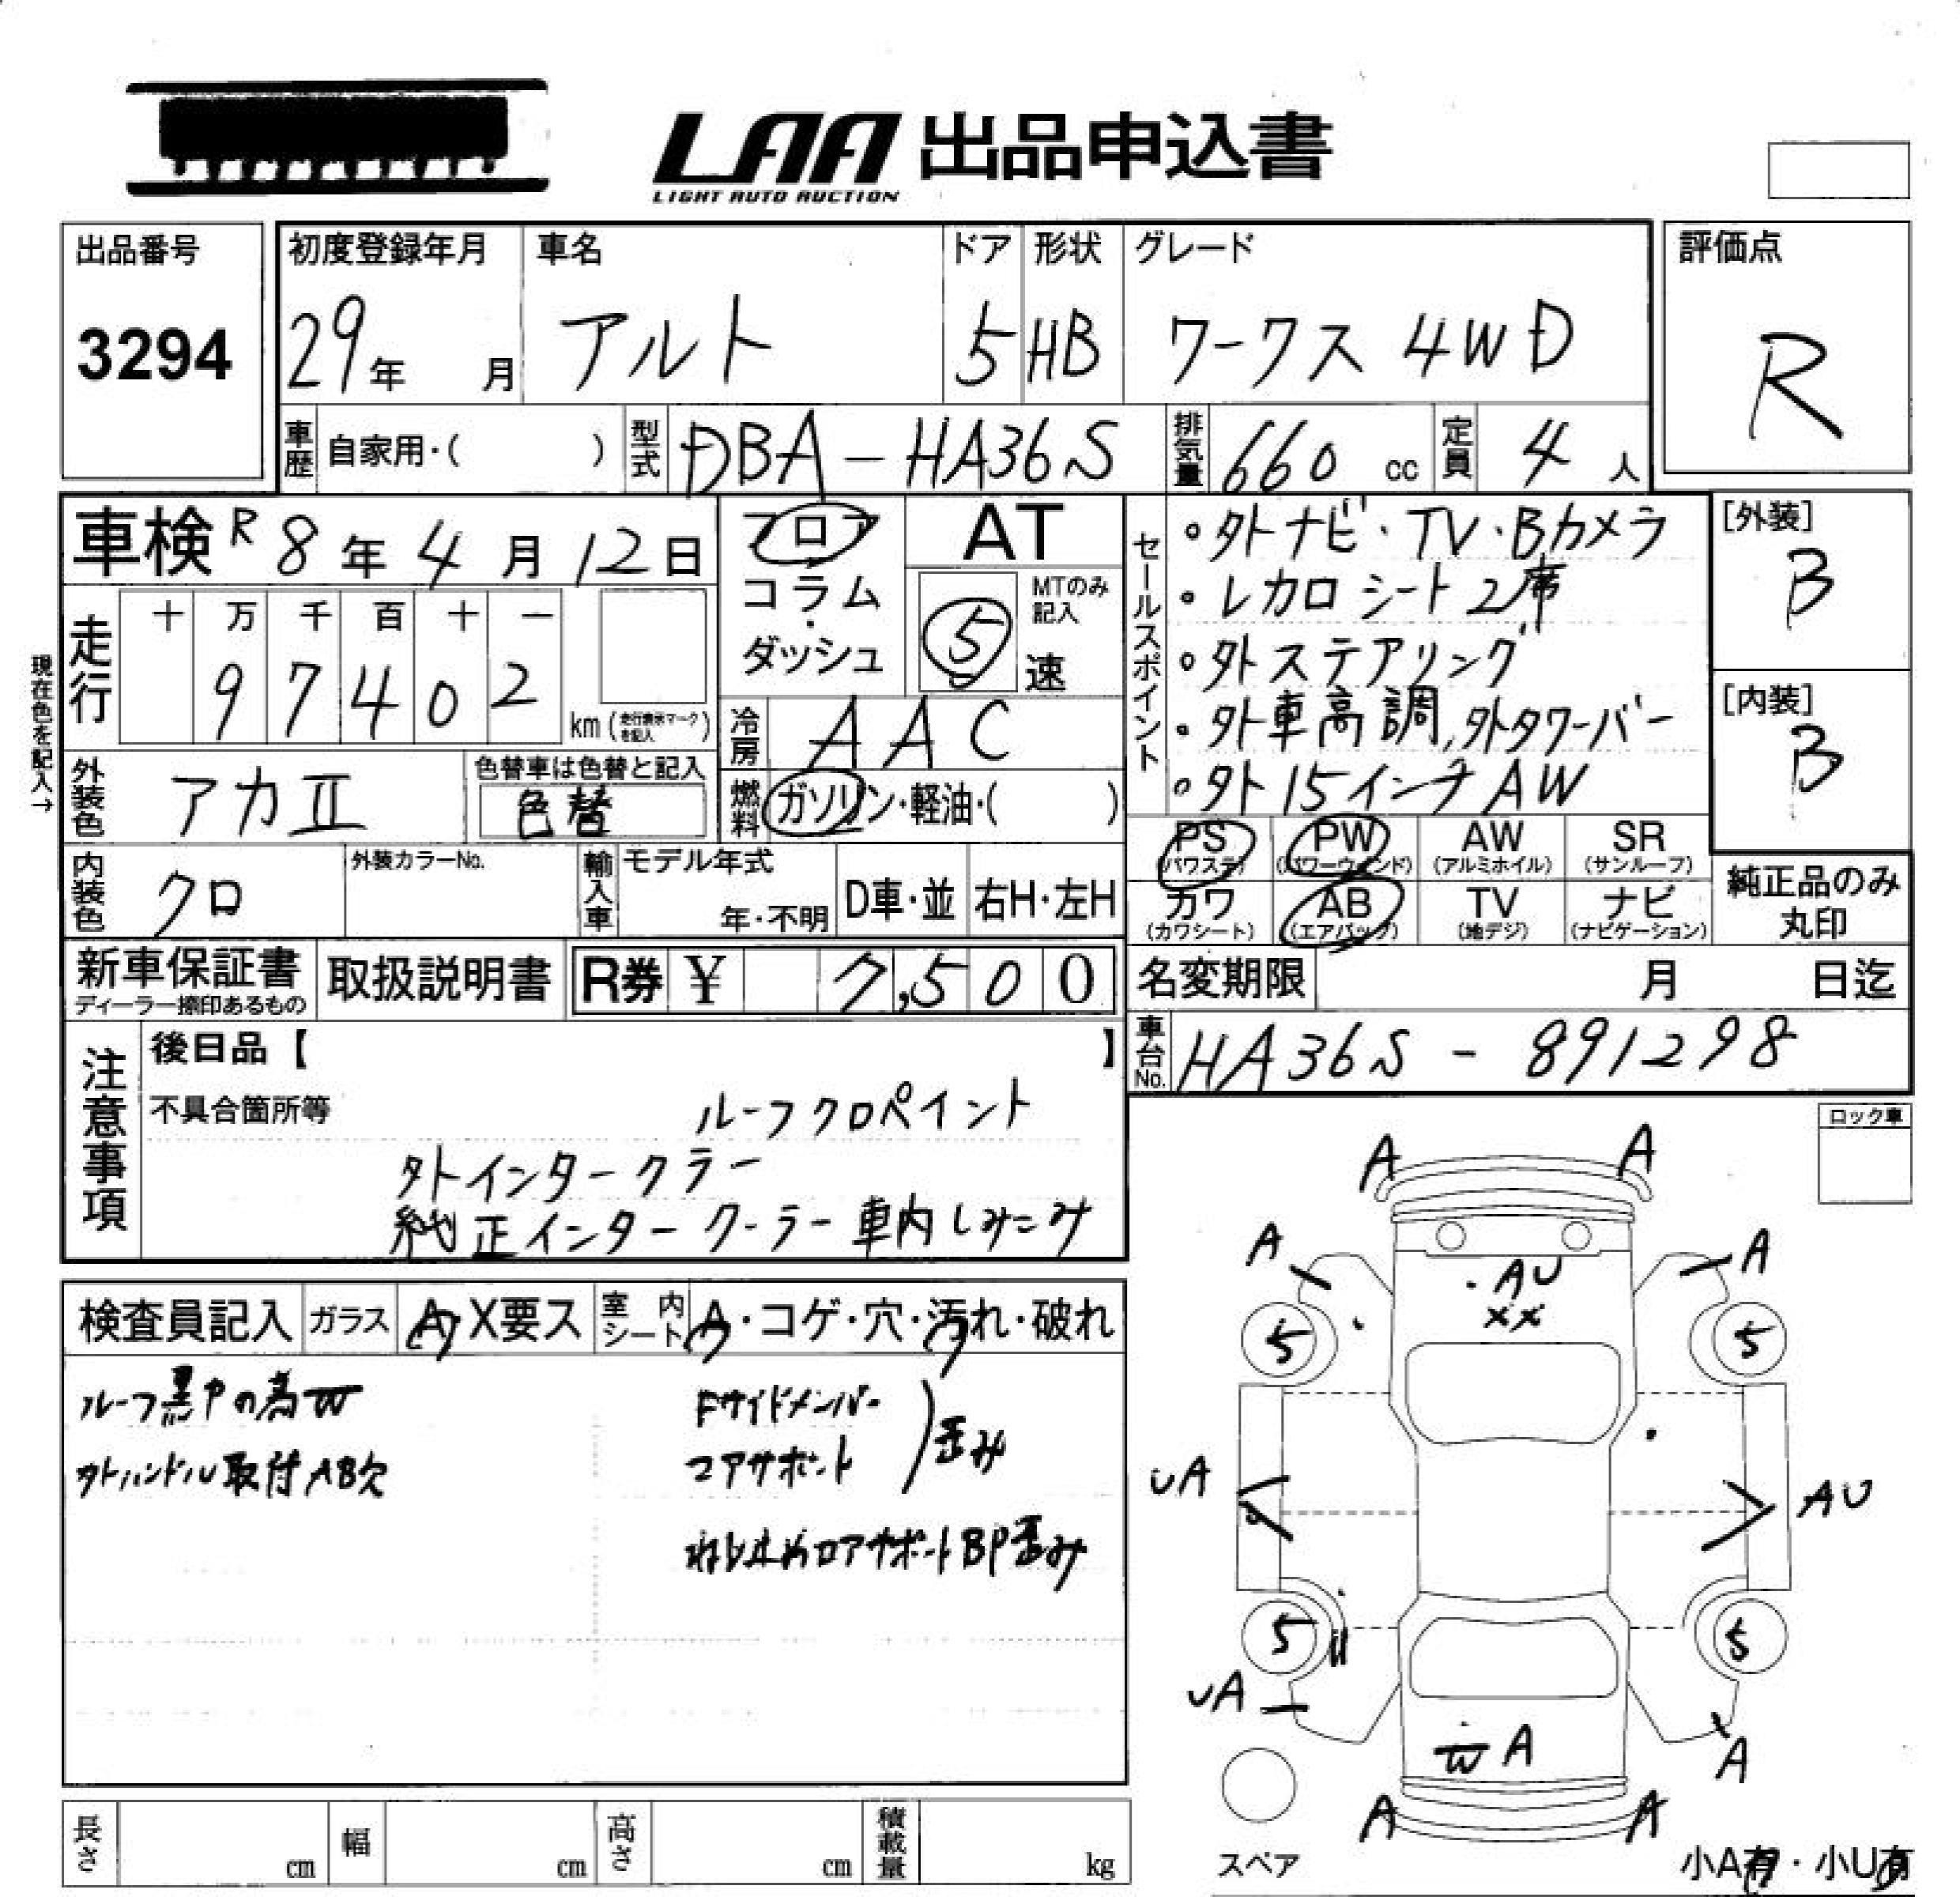 LAA 出品申込書
LIGHT AUTO AUCTION
出品番号
3294
初度登録年月
29年 月
車名
アルト
ドア
5
形状
HB
グレード
ワークス 4WD
評価点
R
車歴 自家用・( )
型式 DBA-HA36S
排気量 660 cc
定員 4 人
車検 R8年4月12日
フロア
コラム
・
ダッシュ
AT
MTのみ記入
5 速
セールスポイント
・外ナビ・TV・Bカメラ
・レカロシート2席
・外ステアリング
・外車高調,外タワーバー
・外15インチAW
[外装]
B
[内装]
B
現在色を記入→
走行
十 万 千 百 十 一
9 7 4 0 2
km(走行表示マークを記入)
冷房 AAC
外装色 アカII
色替車は色替と記入
色替
燃料 ガソリン・軽油・( )
PS (パワステ)
PW (パワーウィンド)
AW (アルミホイル)
SR (サンルーフ)
カワ (カワシート)
AB (エアバッグ)
TV (地デジ)
ナビ (ナビゲーション)
純正品のみ
丸印
内装色 クロ
外装カラーNo.
輸入車
モデル年式
年・不明
D車・並
右H・左H
新車保証書
ディーラー捺印あるもの
取扱説明書
R券 ¥ 7,500
名変期限 月 日迄
車台No. HA36S-891298
注意事項
後日品【 】
不具合箇所等
ルーフクロペイント
外インタークラー
純正インタークーラー車内しみこみ
ロック車
検査員記入
ガラス A・X要ス
室内シート A・コゲ・穴・汚れ・破れ
Fサイドメンバー
コアサポート
歪み
外ハンドル取付AB欠
ロアサポートBP歪み
A A
A A
AU
XX
5 5
UA AU
5 5
UA A
W A
A A
スペア
小A有・小U有
長さ cm
幅 cm
高さ cm
積載量 kg